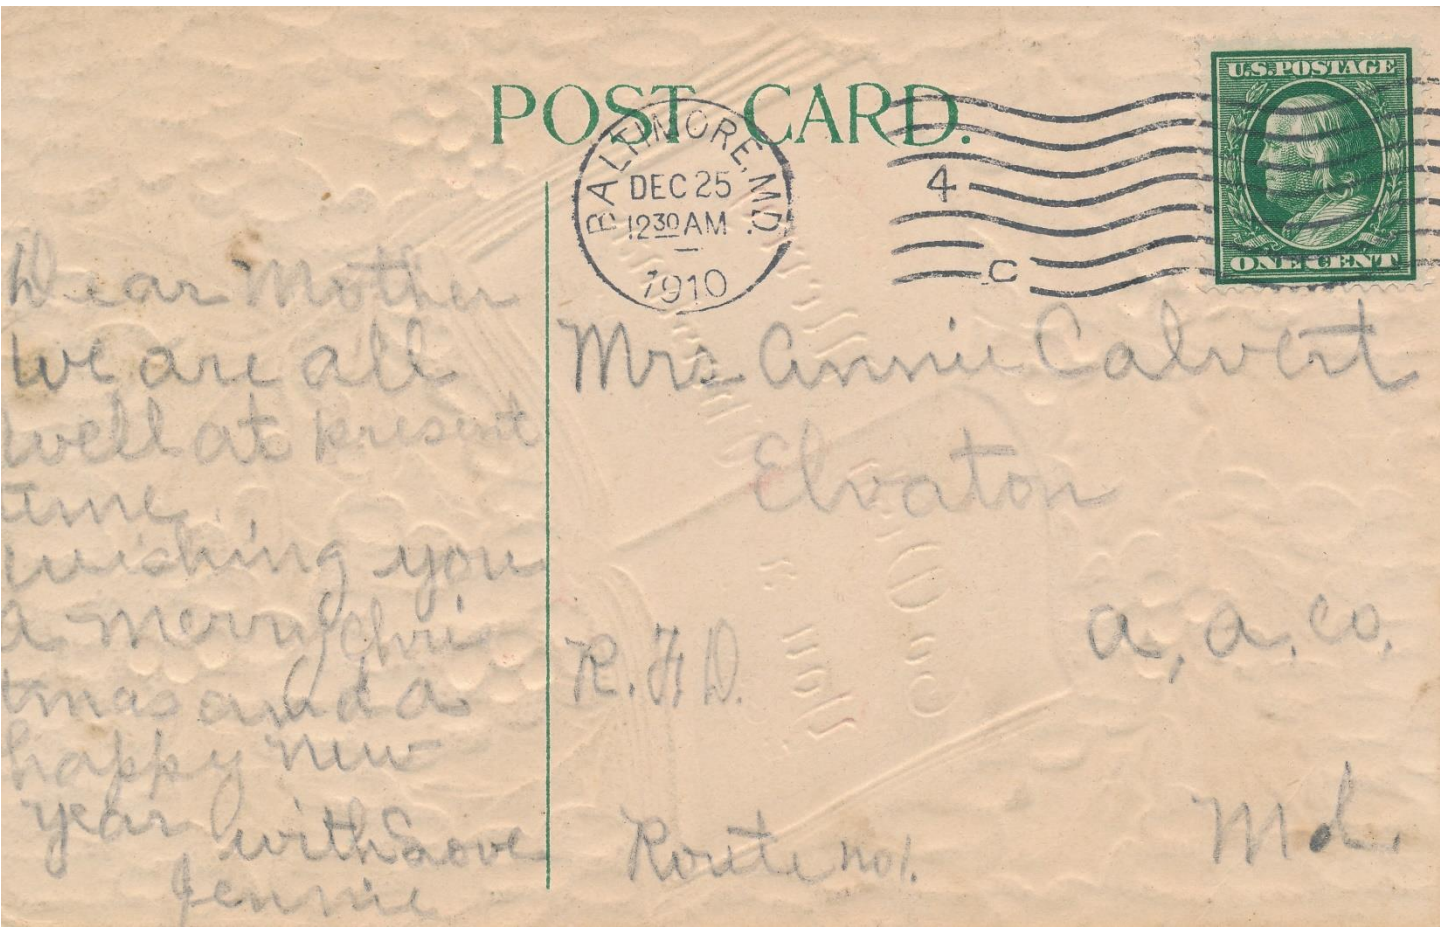 POST CARD.
BALTIMORE, MD.
DEC 25
12 30 AM
1910
4
C
U.S. POSTAGE
ONE CENT
Dear Mother
We are all
well at present
time
wishing you
a merry Chri
tmas and a
happy new
year with Love
Jennie
Mrs Annie Calvert
Elvaton
a, a, co,
R. F D.
Route no 1.
Md.